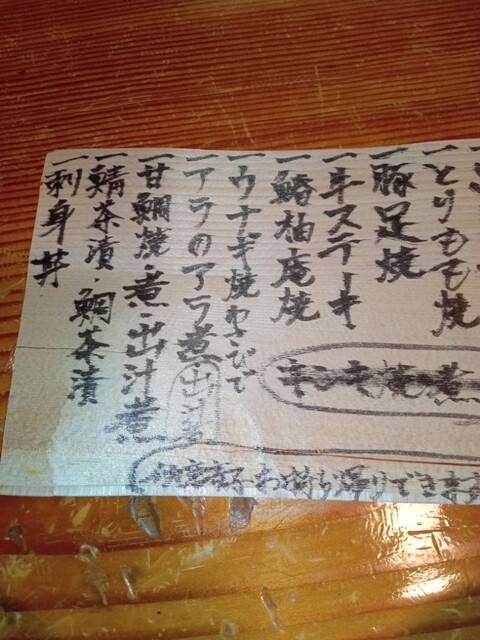 一とりもも焼
一豚足焼
一牛ステーキ
一鰆柚庵焼
一ウナギ焼わさびで
一アラのアラ煮
一甘鯛焼・煮・出汁煮
一鯖茶漬 鯛茶漬
一刺身丼
お持ち帰りできます